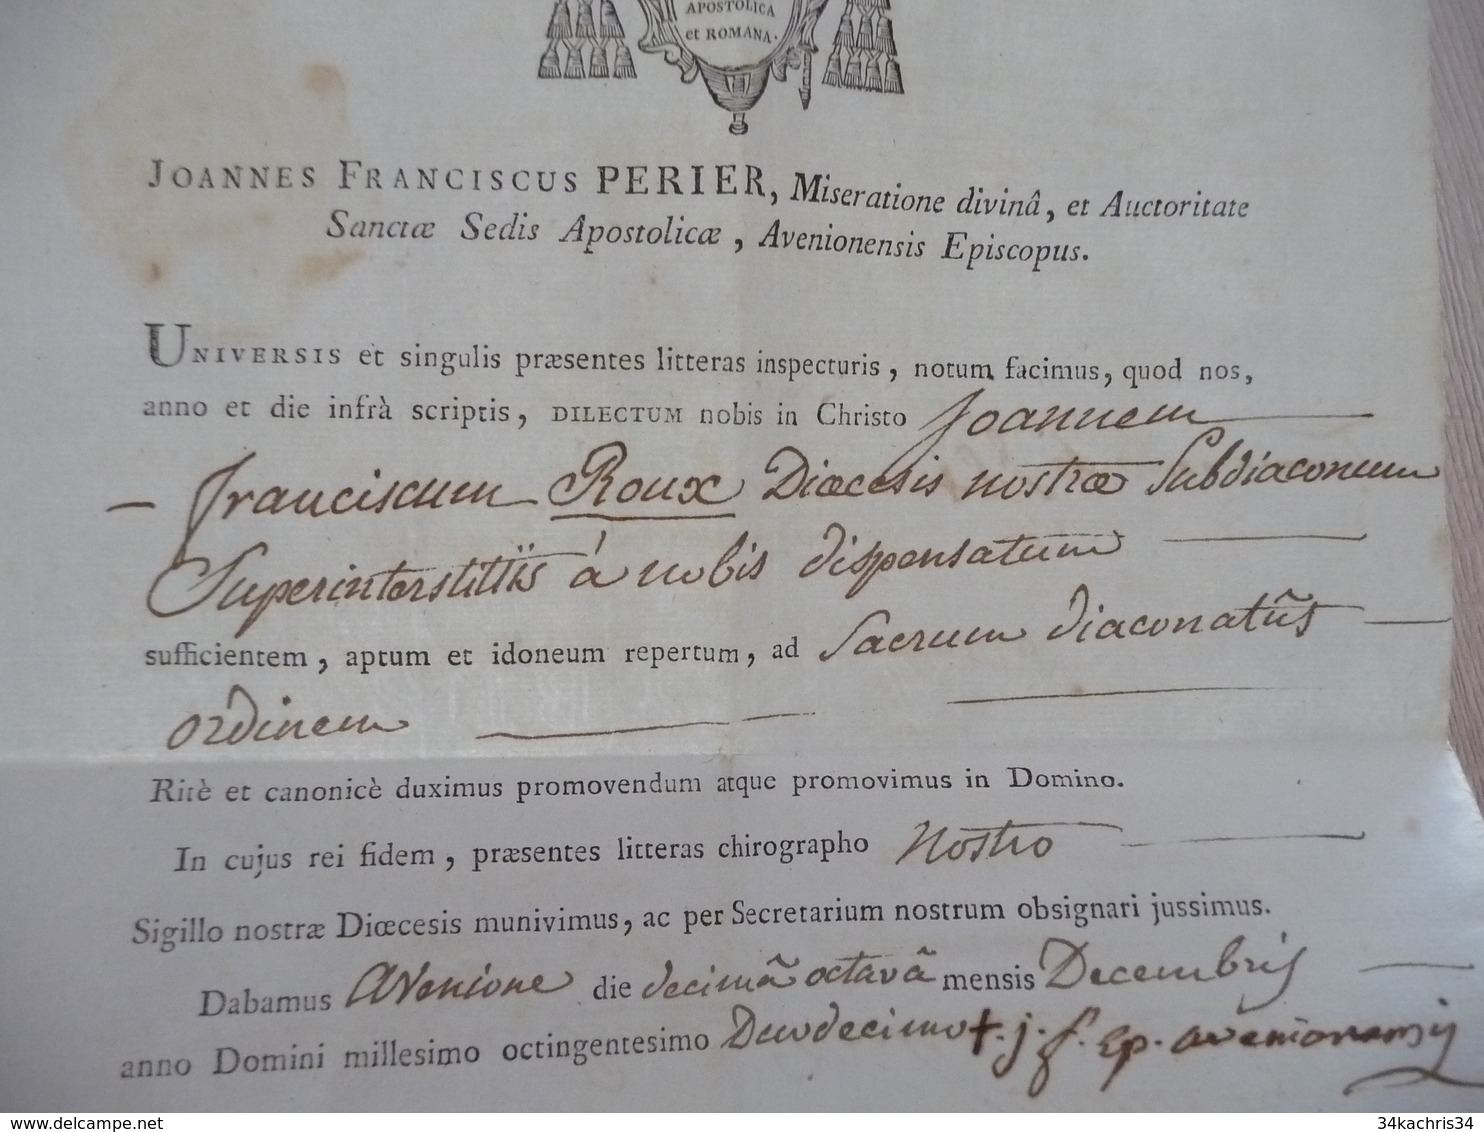 APOSTOLICA
et ROMANA.
JOANNES FRANCISCUS PERIER, Miseratione divinâ, et Auctoritate
Sanctæ Sedis Apostolicæ, Avenionensis Episcopus.
UNIVERSIS et singulis præsentes litteras inspecturis, notum facimus, quod nos,
anno et die infrà scriptis, DILECTUM nobis in Christo Joannem
— Franciscum Roux Diœcesis nostræ Subdiaconum
Superinterstitiis à nobis dispensatum
sufficientem, aptum et idoneum repertum, ad Sacrum diaconatûs
ordinem
Ritè et canonicè duximus promovendum atque promovimus in Domino.
In cujus rei fidem, præsentes litteras chirographo nostro
Sigillo nostræ Diœcesis munivimus, ac per Secretarium nostrum obsignari jussimus.
Dabamus Avenione die decimâ octavâ mensis Decembris
anno Domini millesimo octingentesimo Duodecimo +. j. f. Ep. avenionensis
delcampe.net
34kachris34